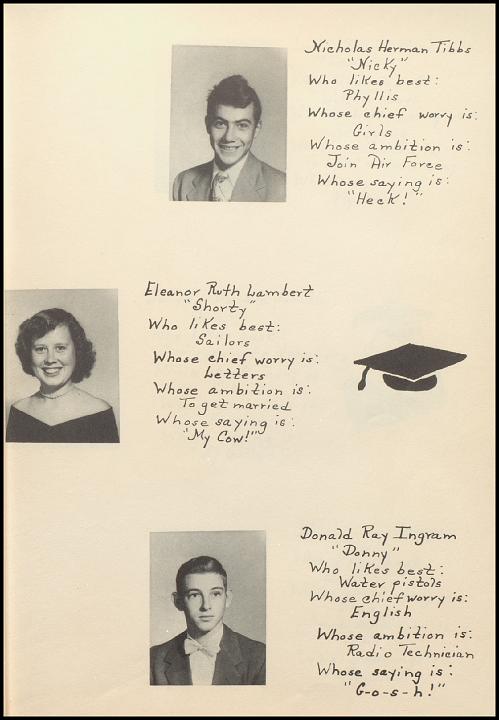 Nicholas Herman Tibbs
"Nicky"
Who likes best:
Phyllis
Whose chief worry is:
Girls
Whose ambition is:
Join Air Force
Whose saying is:
"Heck!"
Eleanor Ruth Lambert
"Shorty"
Who likes best:
Sailors
Whose chief worry is:
Letters
Whose ambition is:
To get married
Whose saying is:
"My Cow!"
Donald Ray Ingram
"Donny"
Who likes best:
Water pistols
Whose chief worry is:
English
Whose ambition is:
Radio Technician
Whose saying is:
"G-o-s-h!"